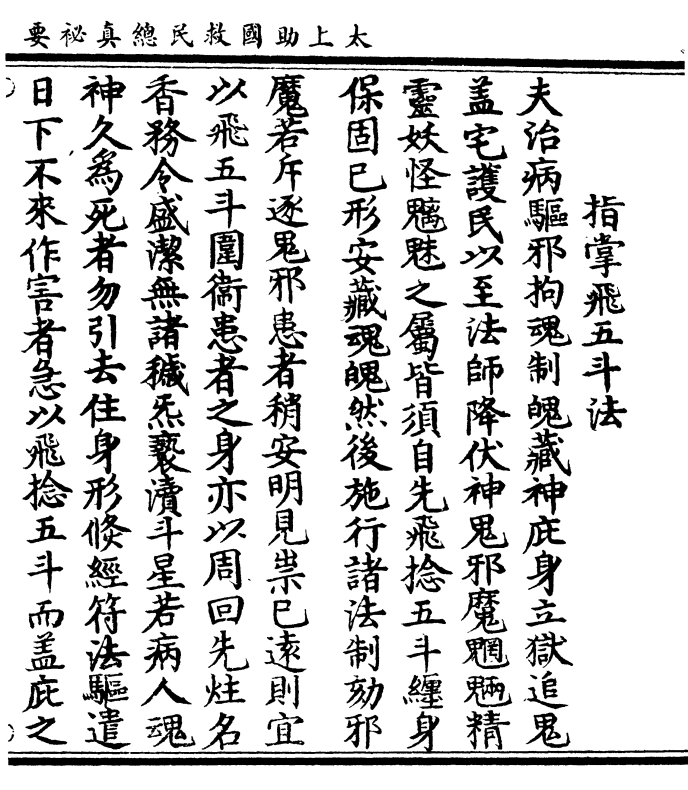 太上助國救民總真祕要
指掌飛五斗法
夫治病驅邪拘魂制魄藏神庇身立獄追鬼
盖宅護民以至法師降伏神鬼邪魔魍魎精
靈妖怪魑魅之屬皆須自先飛捻五斗纏身
保固已形安藏魂魄然後施行諸法制劾邪
魔若斥逐鬼邪患者稍安明見祟已遠則宜
以飛五斗圍衞患者之身亦以周回先炷名
香務令盛潔無諸穢炁褻瀆斗星若病人魂
神久為死者勿引去住身形倏經符法驅遣
日下不來作害者急以飛捻五斗而盖庇之